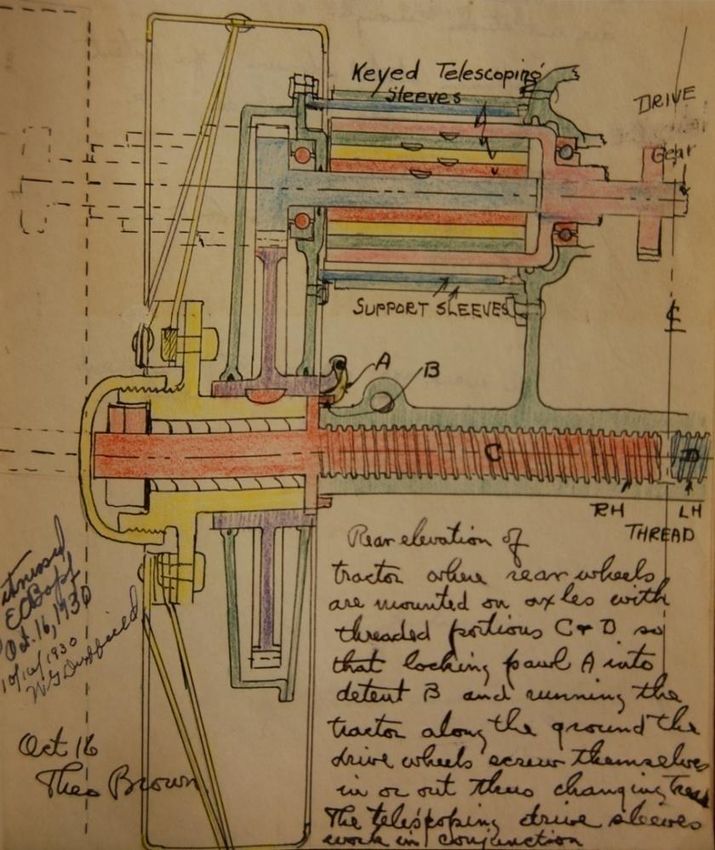 Keyed Telescoping
Sleeves
DRIVE
Gear
SUPPORT SLEEVES
A
B
C
D
RH
LH
THREAD
Rear elevation of
tractor where rear wheels
are mounted on axles with
threaded portions C & D so
that locking pawl A into
detent B and running the
tractor along the ground the
drive wheels screw themselves
in or out thus changing tread
The telescoping drive sleeves
work in conjunction
Oct. 16, 1930
10/16/1930
Oct 16
Theo Brown